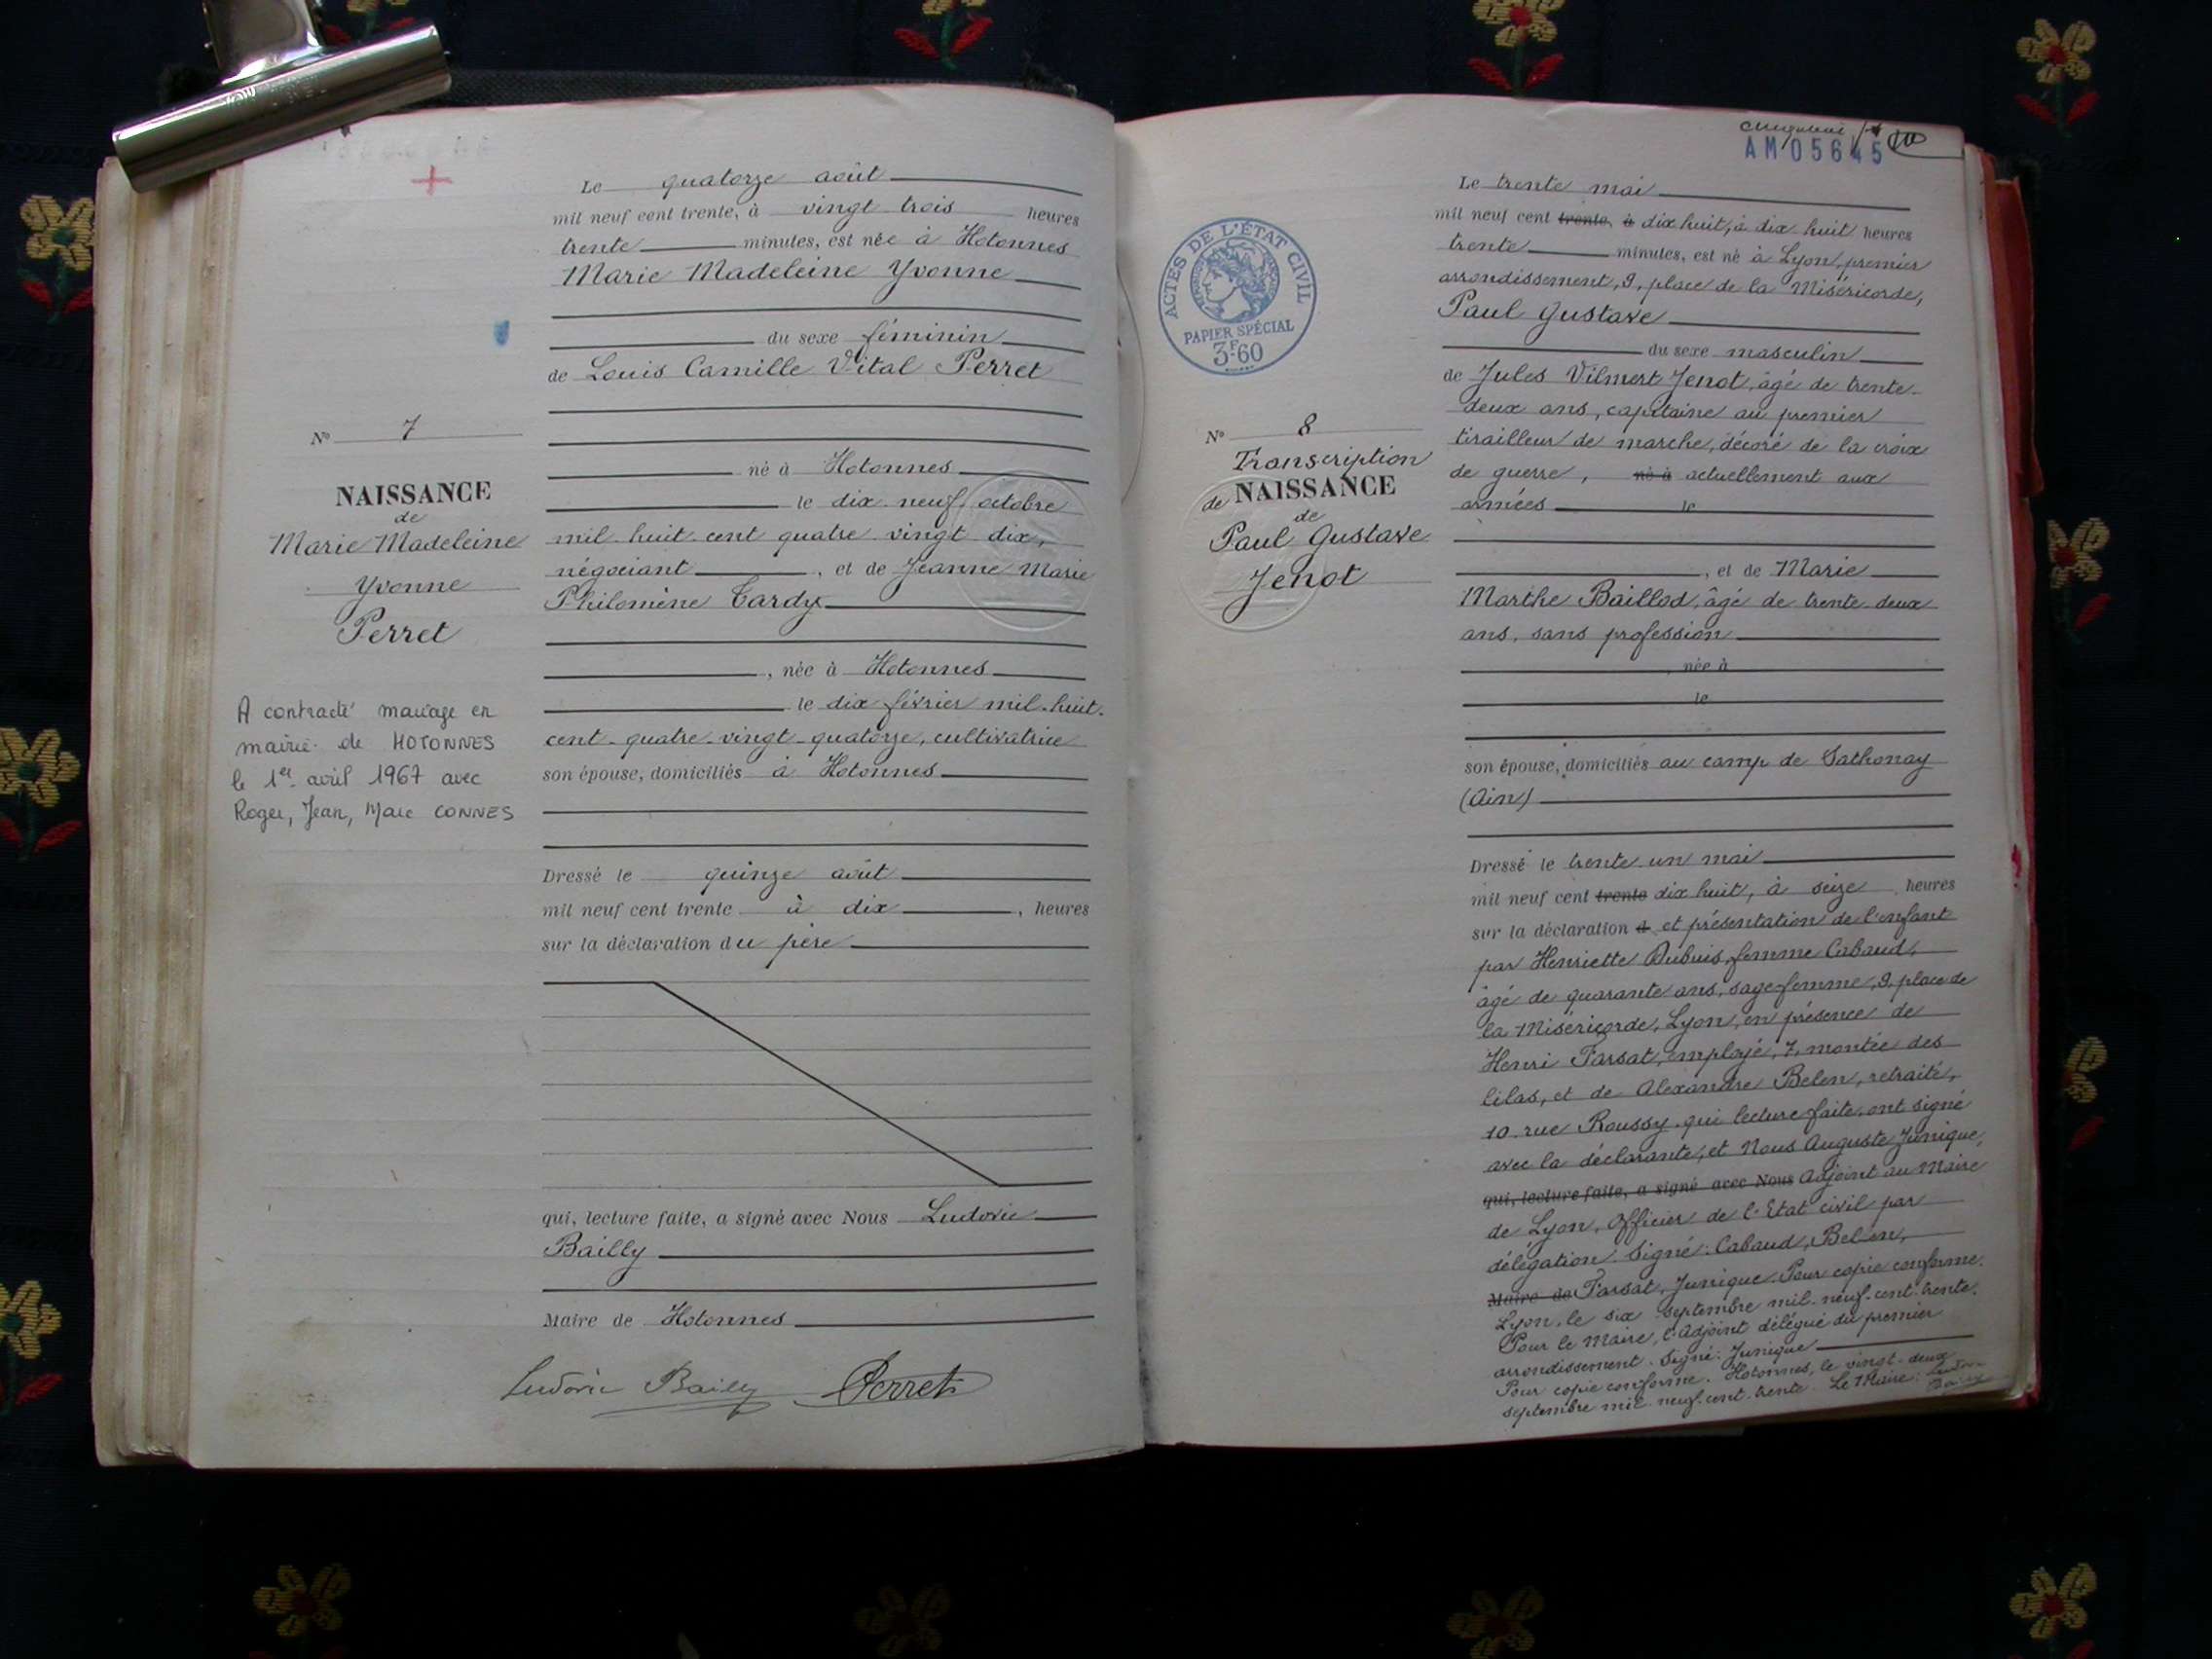 Le quatorze août
mil neuf cent trente, à vingt trois heures
trente minutes, est née à Hotonnes
Marie Madeleine Yvonne
du sexe féminin
de Louis Camille Vital Perret
né à Hotonnes
le dix neuf octobre
mil huit cent quatre vingt dix,
négociant, et de Jeanne Marie
Philomène Tardy
, née à Hotonnes
le dix février mil-huit-
cent-quatre-vingt-quatorze, cultivatrice
son épouse, domiciliés à Hotonnes
Dressé le quinze août
mil neuf cent trente à dix, heures
sur la déclaration du père
qui, lecture faite, a signé avec Nous Ludovic
Bailly
Maire de Hotonnes
Ludovic Bailly Perret
N° 7
NAISSANCE
de
Marie Madeleine
Yvonne
Perret
A contracté mariage en
mairie de HOTONNES
le 1er avril 1967 avec
Roger, Jean, Marc CONNES
AM 05645
ACTES DE L'ÉTAT CIVIL
PAPIER SPÉCIAL
3F.60
N° 8
Transcription
de NAISSANCE
de
Paul Gustave
Jenot
Le trente mai
mil neuf cent trente, à dix huit, à dix huit heures
trente minutes, est né à Lyon, premier
arrondissement, 9, place de la Miséricorde,
Paul Gustave
du sexe masculin
de Jules Vilmert Jenot, âgé de trente-
deux ans, capitaine au premier
tirailleur de marche, décoré de la croix
de guerre, né à actuellement aux
armées le
, et de Marie
Marthe Baillod, âgé de trente-deux
ans, sans profession
, née à
le
son épouse, domiciliés au camp de Sathonay
(Ain)
Dressé le trente-un mai
mil neuf cent trente dix huit, à seize heures
sur la déclaration d et présentation de l'enfant
par Henriette Dubuis, femme Cabaud,
âgé de quarante ans, sage-femme, 9, place de
la Miséricorde, Lyon, en présence de
Henri Farsat, employé, 7, montée des
lilas, et de Alexandre Belen, retraité,
10 rue Roussy qui lecture faite, ont signé
avec la déclarante, et Nous Auguste Junique,
qui, lecture faite, a signé avec Nous Adjoint au Maire
de Lyon, Officier de l'Etat civil par
délégation. Signé: Cabaud, Belen,
Maire de Farsat, Junique. Pour copie conforme.
Lyon, le six septembre mil-neuf-cent-trente.
Pour le Maire, l'Adjoint délégué du premier
arrondissement. Signé: Junique
Pour copie conforme. Hotonnes, le vingt-deux
septembre mil-neuf-cent-trente. Le Maire: